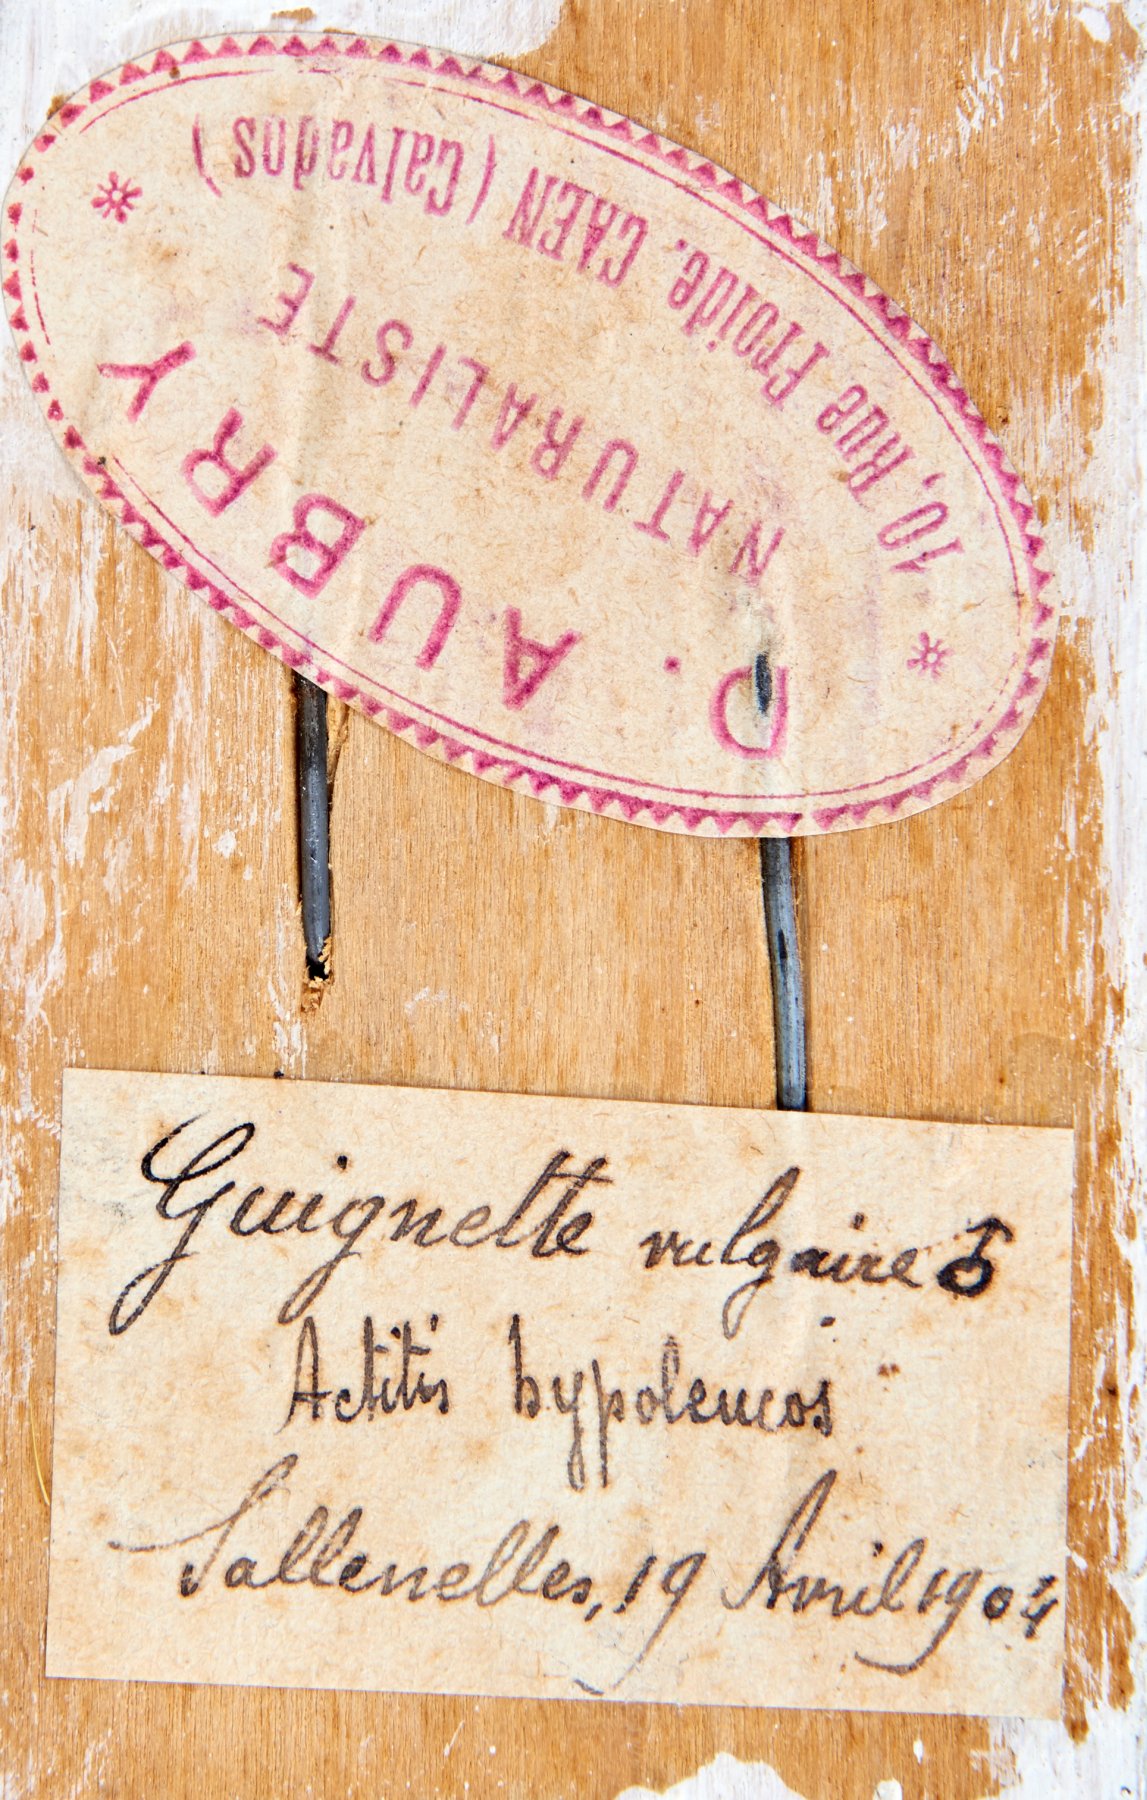 D. AUBRY
NATURALISTE
10, Rue Froide, CAEN (Calvados)
Guignette vulgaire ♂
Actitis hypoleucos
Sallenelles, 19 Avril 1904